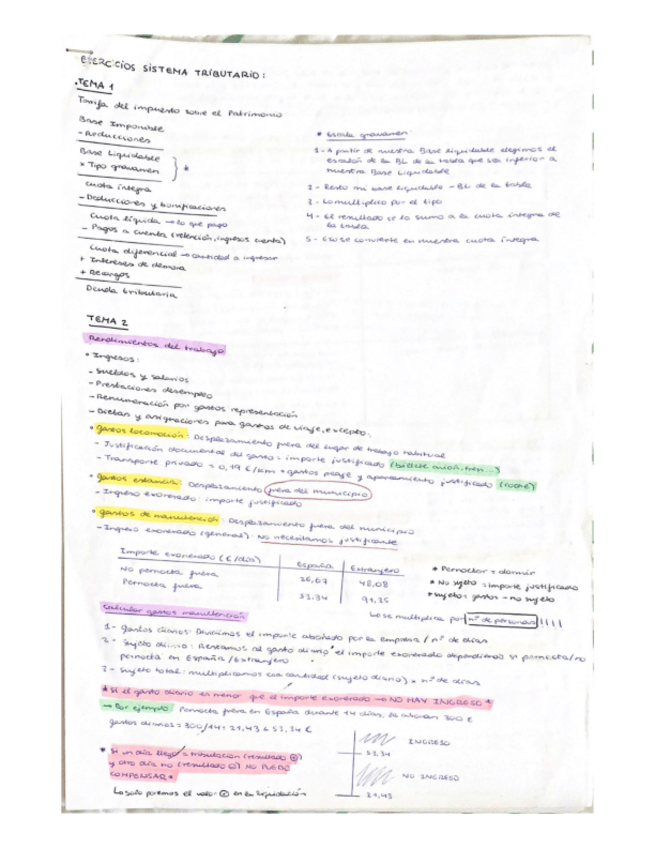 EJERCICIOS SISTEMA TRIBUTARIO:
• TEMA 1
Tarifa del impuesto sobre el Patrimonio
Base Imponible
- Reducciones
Base Liquidable
x Tipo gravamen } *
Cuota íntegra
- Deducciones y bonificaciones
Cuota líquida → lo que pago
- Pagos a cuenta (retención, ingresos cuenta)
Cuota diferencial → cantidad a ingresar
+ Intereses de demora
+ Recargos
Deuda tributaria
* Escala gravamen:
1 - A partir de nuestra Base Liquidable elegimos el
escalón de la BL de la tabla que sea inferior a
nuestra Base Liquidable
2 - Resto mi base liquidable - BL de la tabla
3 - Lo multiplico por el tipo
4 - El resultado se lo sumo a la cuota íntegra de
la tabla
5 - Eso se convierte en nuestra cuota íntegra
TEMA 2
Rendimientos del trabajo
• Ingresos:
- Sueldos y salarios
- Prestaciones desempleo
- Remuneración por gastos representación
- Dietas y asignaciones para gastos de viaje, excepto:
• gastos locomoción: Desplazamiento fuera del lugar de trabajo habitual
- Justificación documental del gasto = importe justificado (billete avión, tren...)
- Transporte privado = 0,19 €/km + gastos peaje y aparcamiento justificado (coche)
• gastos estancia: Desplazamiento fuera del municipio
- Ingreso exonerado: importe justificado
• gastos de manutención: Desplazamiento fuera del municipio
- Ingreso exonerado (general): No necesitamos justificante
Importe exonerado (€/días) España Extranjero
No pernocta fuera 26,67 48,08
Pernocta fuera 53,34 91,35
* Pernoctar = dormir
* No sujeto = importe justificado
* sujeto: gastos - no sujeto
Calcular gastos manutención
Lo se multiplica por nº de personas !!!!
1 - gastos diarios: Dividimos el importe abonado por la empresa / nº de días
2 - Sujeto diario: Restamos al gasto diario el importe exonerado dependiendo si pernocta/no
pernocta en España/Extranjero
3 - Sujeto total: multiplicamos esa cantidad (sujeto diario) x nº de días
* Si el gasto diario es menor que el importe exonerado → NO HAY INGRESO *
→ Por ejemplo: Pernocta fuera en España durante 14 días, le abonan 300 €
gastos diarios = 300/14 = 21,43 ≤ 53,34 €
INGRESO
53,34
NO INGRESO
21,43
* Si un día llego a tributación (resultado ⊕)
y otro día no (resultado ⊖) NO PUEDO
COMPENSAR *
Lo solo ponemos el valor ⊕ en la liquidación